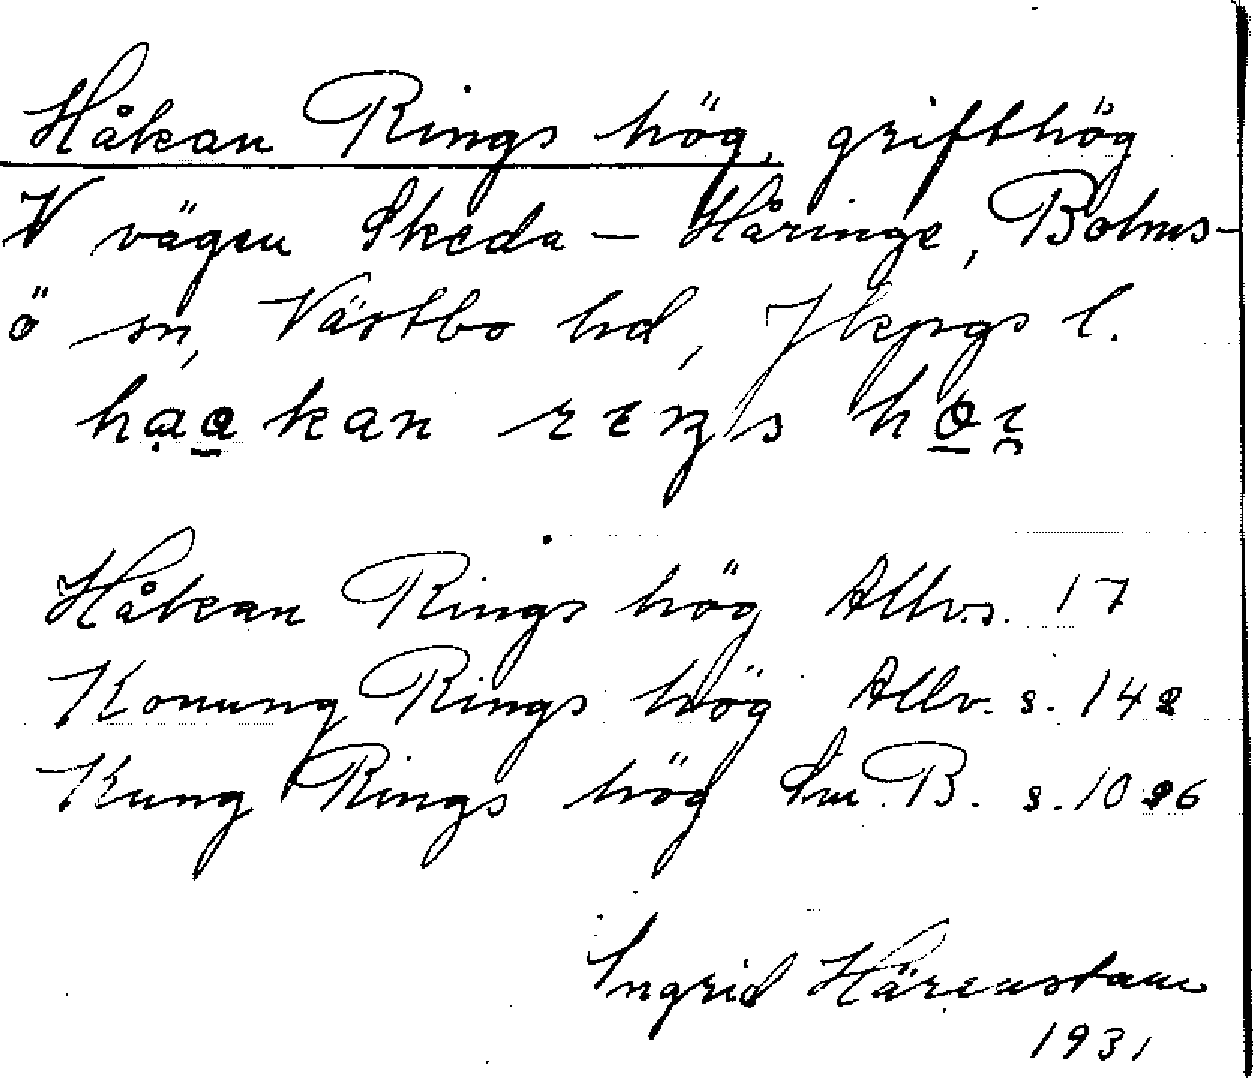 Håkan Rings hög, grifthög
V vägen Skeda – Håringe, Bolms-
ö sn, Västbo hd, Jkpgs l.
Håkan Rings hög Allvs. 17
Konung Rings hög Allv. s. 142
Kung Rings hög Sm. B. s. 1026
Ingrid Härenstam
1931